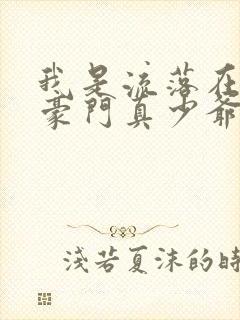 我是流落在
豪門真少爺
淺若夏沫的時